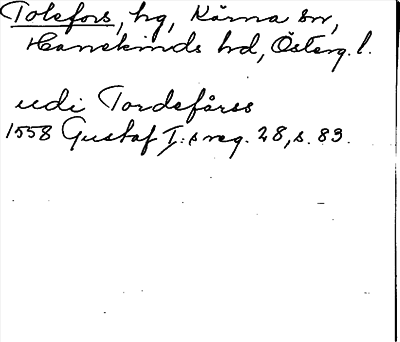 Tolefors, hg, Kärna sn,
Hanekinds hd, Österg. l.
udi Tordsfårss
1558 Gustaf I:s reg. 28, s. 83.